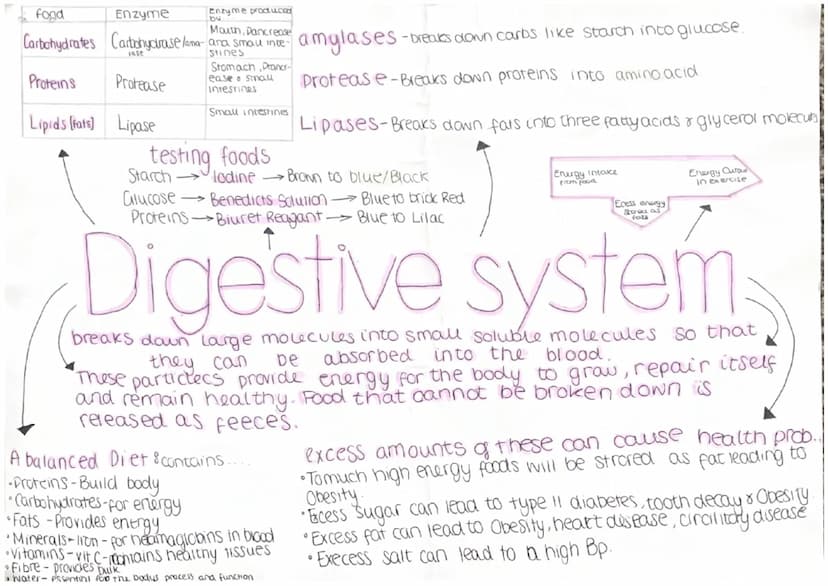 Food Enzyme Enzyme produced by
Carbohydrates Carbohydrase/ama-
rase
Mouth, Pancrease
and small inte-
stines
Proteins Protease
Stomach, Pancr-
ease & small
intestines
Lipids [fats] Lipase Small intestines
amylases - breaks down carbs like starch into glucose.
Protease - Breaks down proteins into amino acid
Lipases - Breaks down fats into three fatty acids & glycerol molecules
testing foods
Starch → Iodine → Brown to blue/Black
Glucose → Benedicts Solution → Blue to brick Red
Proteins → Biuret Reagant → Blue to Lilac
Energy intake
from food
Energy Output
in exercise
Ecess energy
stored as
fats
Digestive system
breaks down large molecules into small soluble molecules so that
they can be absorbed into the blood.
These particlecs provide energy for the body to grow, repair itself
and remain healthy. Food that cannot be broken down is
released as feeces.
A balanced Diet contains....
• Proteins - Build body
• Carbohydrates - for energy
• Fats - Provides energy
• Minerals - Iron - for heamaglobins in blood
• Vitamins - vit C - mantains healthy tissues
• Fibre - provides bulk
• Water - essential for the bodys process and function
excess amounts of these can cause health prob..
• Tomuch high energy foods will be strored as fat leading to
Obesity.
• Excess sugar can lead to type 11 diabetes, tooth decay & Obesity
• Excess fat can lead to Obesity, heart disease, circulitory disease
• Execess salt can lead to a high Bp.